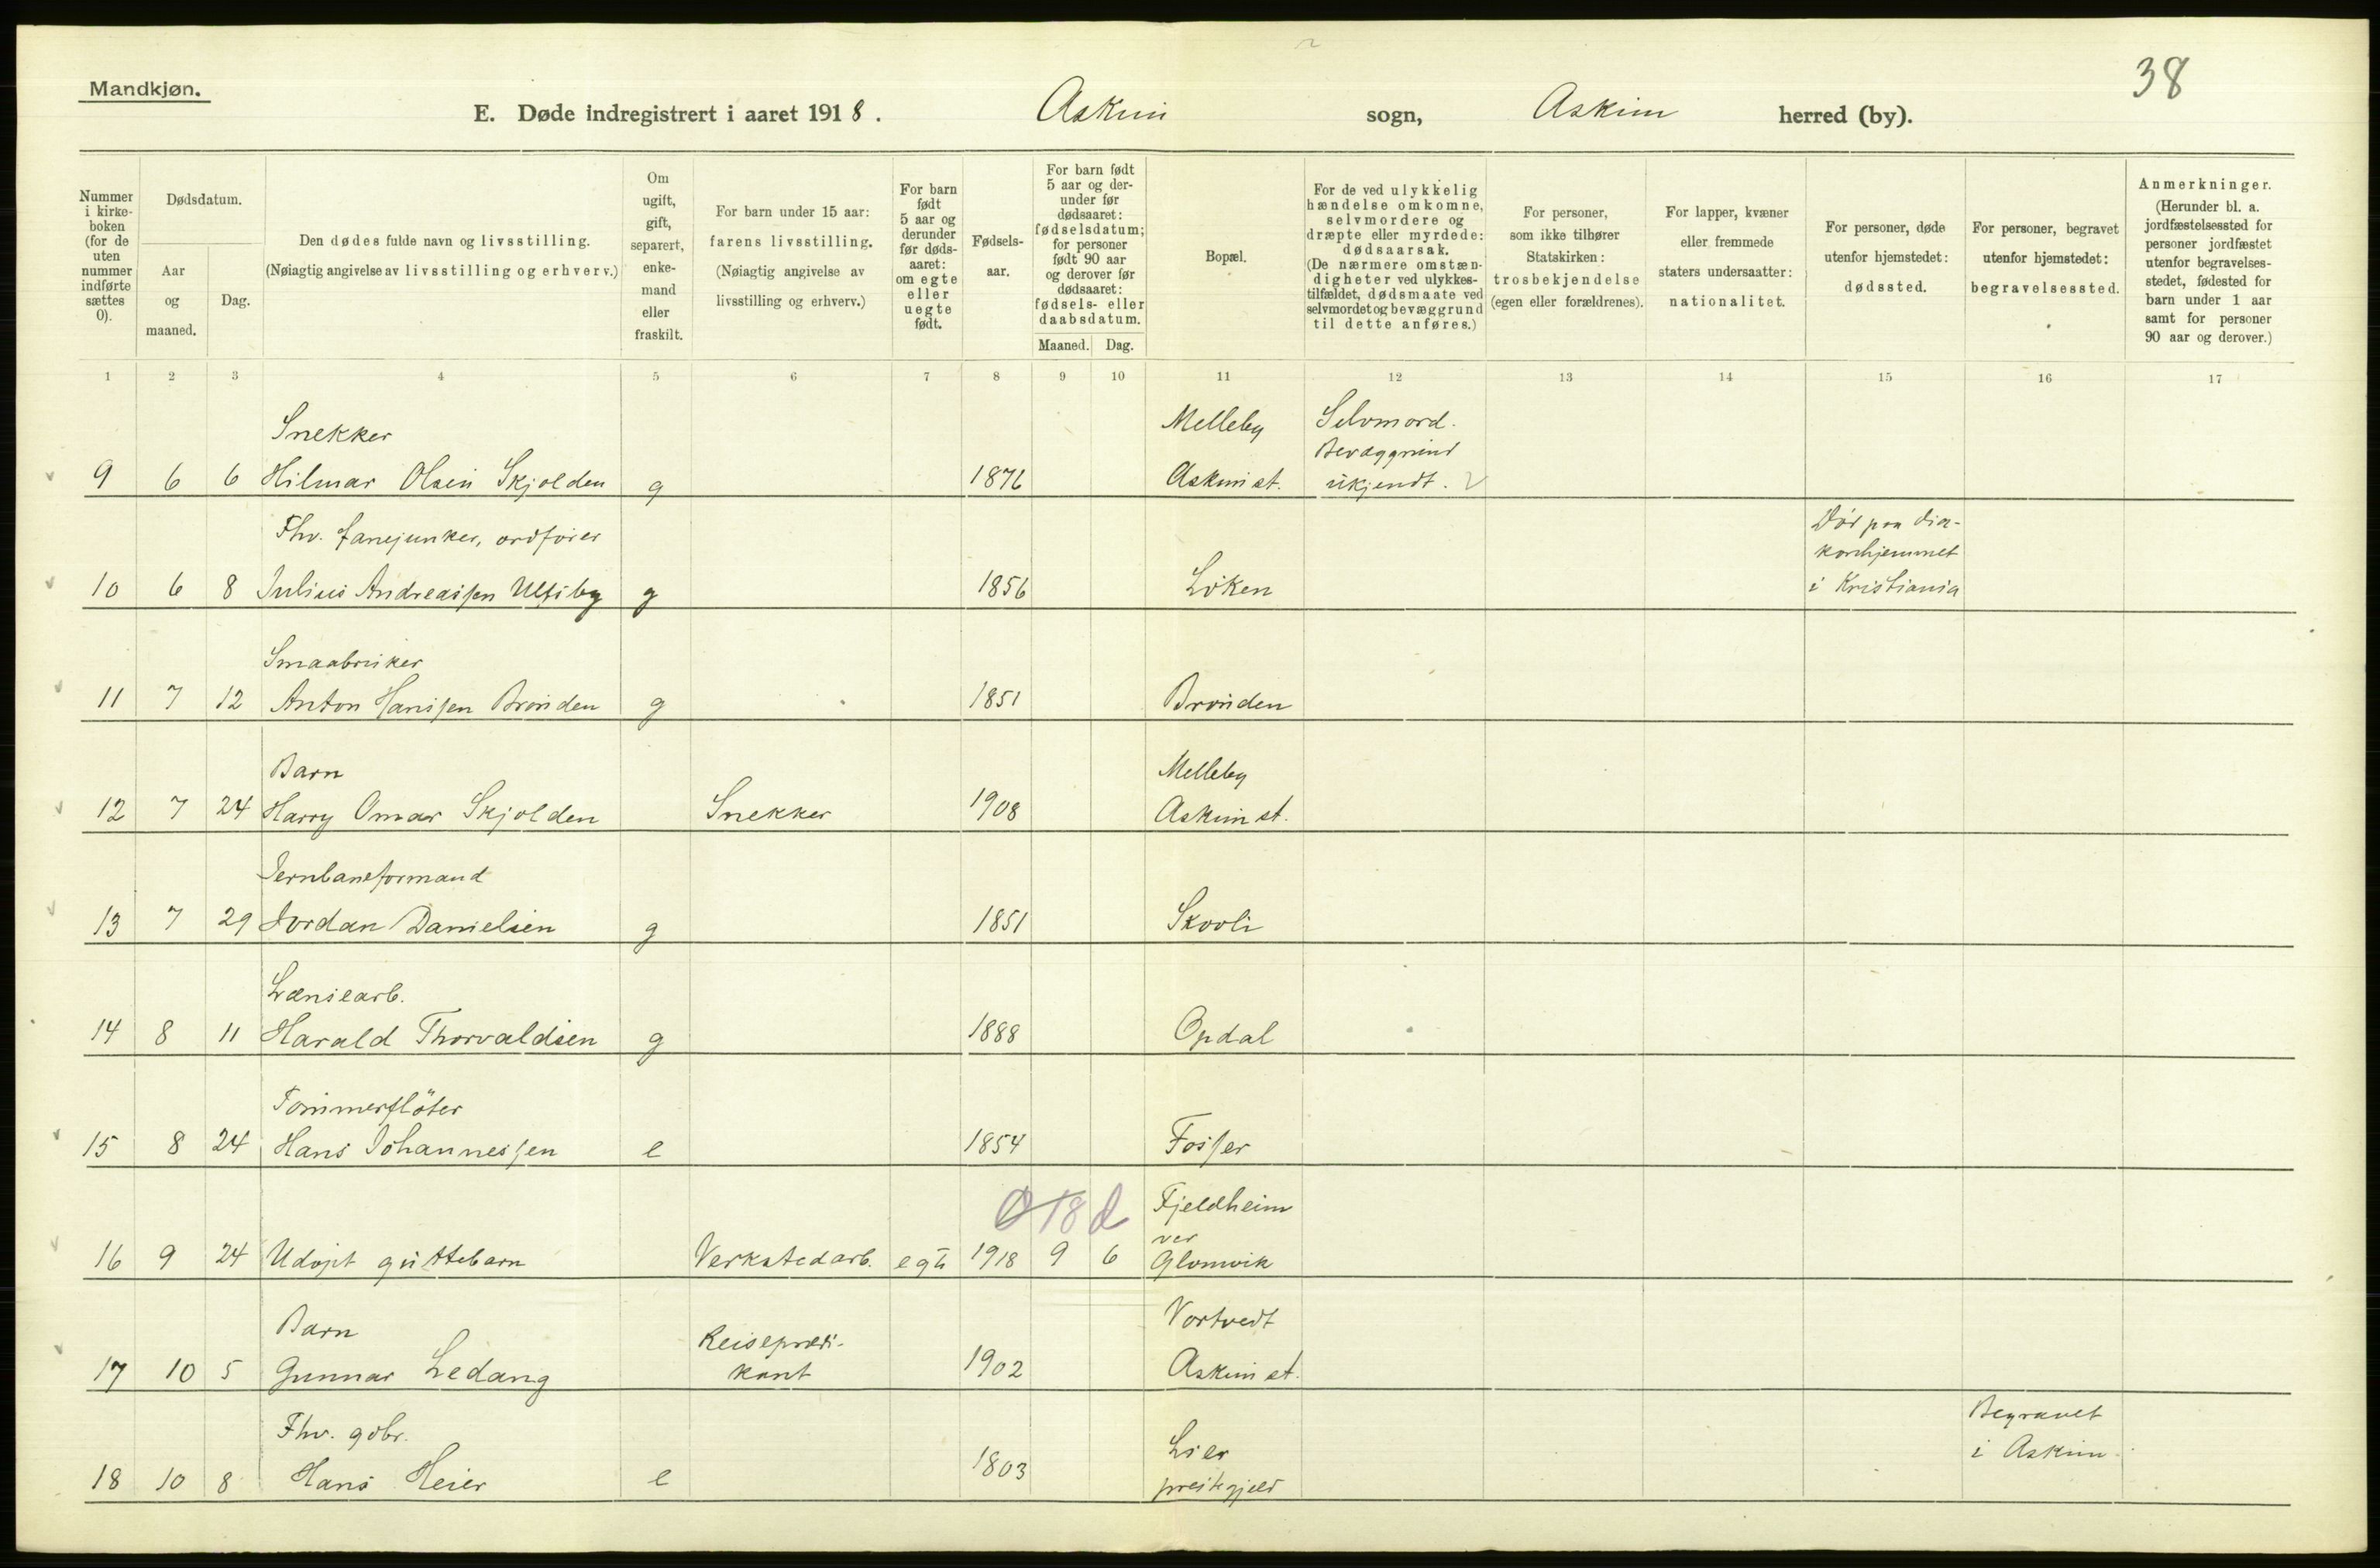 38
Mandkjøn.
E. Døde indregistrert i aaret 1918. Askim sogn, Askim herred (by).
Nummer i kirkeboken (for de uten nummer indførte sættes 0).
Dødsdatum.
Aar og maaned.
Dag.
Den dødes fulde navn og livsstilling.
(Nøiagtig angivelse av livsstilling og erhverv.)
Om ugift, gift, separert, enkemand eller fraskilt.
For barn under 15 aar:
farens livsstilling.
(Nøiagtig angivelse av
livsstilling og erhverv.)
For barn født 5 aar og derunder før dødsaaret: om egte eller uegte født.
Fødselsaar.
For barn født 5 aar og derunder før dødsaaret: fødselsdatum; for personer født 90 aar og derover før dødsaaret: fødsels- eller daabsdatum.
Maaned. Dag.
Bopæl.
For de ved ulykkelig hændelse omkomne, selvmordere og dræpte eller myrdede: dødsaarsak.
(De nærmere omstændigheter ved ulykkestilfældet, dødsmaate ved selvmordet og bevæggrund til dette anføres.)
For personer, som ikke tilhører Statskirken: trosbekjendelse (egen eller forældrenes).
For lapper, kvæner eller fremmede staters undersaatter: nationalitet.
For personer, døde utenfor hjemstedet: dødssted.
For personer, begravet utenfor hjemstedet: begravelsessted.
Anmerkninger.
(Herunder bl. a. jordfæstelsessted for personer jordfæstet utenfor begravelsesstedet, fødested for barn under 1 aar samt for personer 90 aar og derover.)
1 2 3 4 5 6 7 8 9 10 11 12 13 14 15 16 17
Snekker Melleby Selvmord.
Bevæggrund
9 6 6 Hilmar Olsen Skjolden g 1876 Askim st. ukjendt.
Fhv. fanejunker, ordfører Død paa dia-
konhjemmet
10 6 8 Julius Andreassen Ulfsby g 1856 Løken i Kristiania
Smaabruker
11 7 12 Anton Hanssen Brønden g 1851 Brønden
Barn Melleby
12 7 24 Harry Omar Skjolden Snekker 1908 Askim st.
Jernbaneformand
13 7 29 Jordan Danielsen g 1851 Skovli
Lænsearb.
14 8 11 Harald Thorvaldsen g 1888 Opdal
Tømmerfløter
15 8 24 Hans Johannessen e 1854 Fosser
018 d Fjeldheim
ver
16 9 24 Udøpt guttebarn Verkstedarb. egte 1918 9 6 Glomvik
Barn Reisepredi- Vortvedt
17 10 5 Gunnar Ledang kant 1902 Askim st.
Fhv. gdbr. Lier Begravet
i Askim.
18 10 8 Hans Heier e 1803 prestegjeld